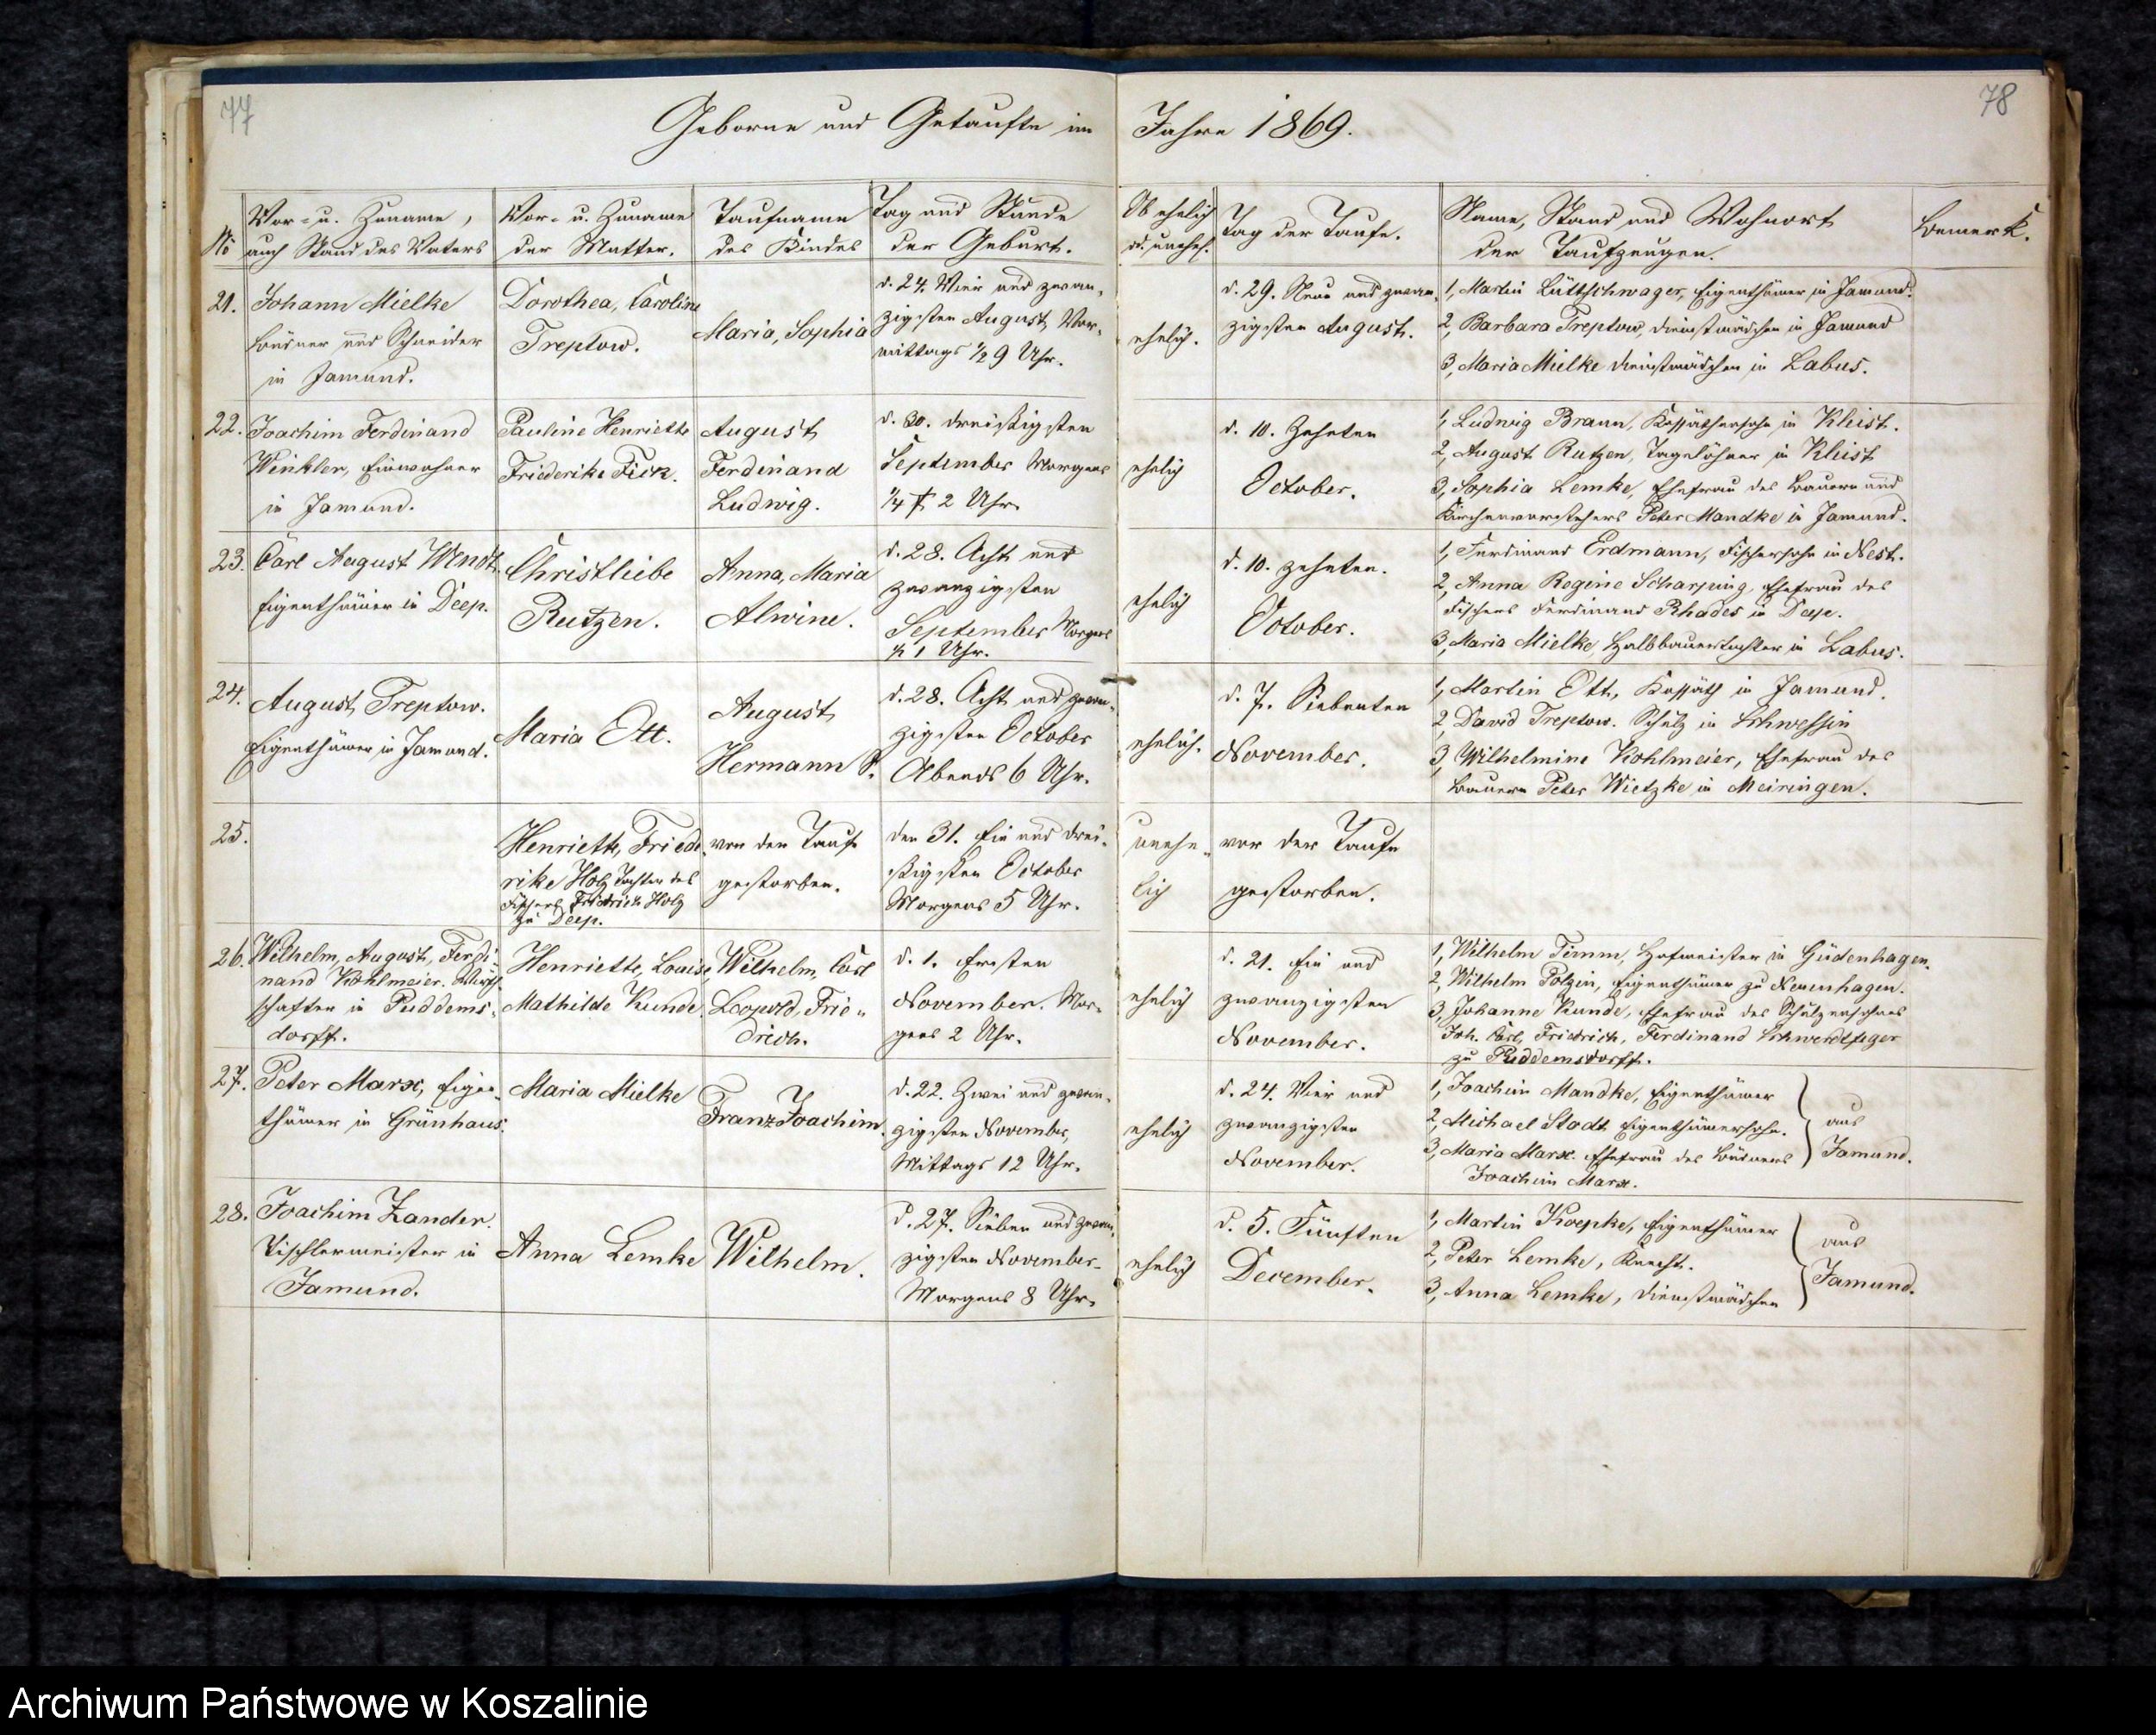 77
78
Geborne und Getaufte im Jahre 1869.
No
Vor- u. Zuname,
auch Stand des Vaters
Vor- u. Zuname
der Mutter.
Taufname
des Kindes
Tag und Stunde
der Geburt.
Ob ehelich
od. unehel.
Tag der Taufe.
Name, Stand und Wohnort
der Taufzeugen.
Bemerk.
21.
Johann Mielke
Büdner und Schneider
in Jamund.
Dorothea, Caroline
Treptow.
Maria, Sophia
d. 24. Vier und zwan-
zigsten August, Vor-
mittags ½ 9 Uhr.
ehelich.
d. 29. Neun und zwan-
zigsten August.
1, Martin Lüttschwager, Eigenthümer in Jamund.
2, Barbara Treptow, Dienstmädchen in Jamund
3, Maria Mielke Dienstmädchen in Labus.
22.
Joachim Ferdinand
Winkler, Einwohner
in Jamund.
Pauline Henriette
Friederike Fick.
August
Ferdinand
Ludwig.
d. 30. dreißigsten
September Morgens
¼ 2 Uhr.
ehelich
d. 10. Zehnten
October.
1, Ludwig Braun, Kossäthensohn in Kleist.
2, August Rutzen, Tagelöhner in Kleist
3, Sophia Lemke, Ehefrau des Bauern und
Kirchenvorstehers Peter Mandke in Jamund.
23.
Carl August Wendt.
Eigenthümer in Deep.
Christliebe
Rutzen.
Anna, Maria
Alwine.
d. 28. Acht und
zwanzigsten
September Morgens
1 Uhr.
ehelich
d. 10. zehnten.
October.
1, Ferdinand Erdmann, Fischersohn in Nest.
2, Anna Regine Scharping, Ehefrau des
Fischers Ferdinand Rhades in Deep.
3, Maria Mielke, Halbbauertochter in Labus.
24.
August Treptow.
Eigenthümer in Jamund.
Maria Ott.
August
Hermann
d. 28. Acht und zwan-
zigsten October
Abends 6 Uhr.
ehelich.
d. 7. Siebenten
November.
1, Martin Ott, Kossäth in Jamund.
2, David Treptow. Schulz in Schwessin
3, Wilhelmine Kohlmeier, Ehefrau des
Bauern Peter Wietzke in Meiringen.
25.
Henriette, Friede-
rike Holz Tochter des
Fischers Friedrich Holz
zu Deep.
vor der Taufe
gestorben.
den 31. Ein und drei-
ßigsten October
Morgens 5 Uhr.
unehe-
lich
vor der Taufe
gestorben.
26.
Wilhelm, August, Ferdi-
nand Kohlmeier.
in Puddems-
dorff.
Henriette, Louise,
Mathilde Kunde.
Wilhelm, Carl
Leopold, Frie-
drich.
d. 1. Ersten
November. Mor-
gens 2 Uhr.
ehelich
d. 21. Ein und
zwanzigsten
November.
1, Wilhelm Timm, Hofmeister in Güdenhagen.
2, Wilhelm Polzin, Eigenthümer zu Neuenhagen.
3, Johanne Kunde, Ehefrau des Schulzensohnes
Joh. Carl, Friedrich, Ferdinand Schwerdtfeger
zu Puddemsdorff.
27.
Peter Marx, Eigen-
thümer in Grünhaus.
Maria Mielke
Franz Joachim.
d. 22. Zwei und zwan-
zigsten November,
Mittags 12 Uhr.
ehelich
d. 24. Vier und
zwanzigsten
November.
1, Joachim Mandke, Eigenthümer
2, Michael Stodt, Eigenthümersohn.
3, Maria Marx. Ehefrau des Büdners
Joachim Marx.
aus
Jamund.
28.
Joachim Zander.
Tischlermeister in
Jamund.
Anna Lemke
Wilhelm.
d. 27. Sieben und zwan-
zigsten November.
Morgens 8 Uhr.
ehelich
d. 5. Fünften
December.
1, Martin Koepke, Eigenthümer
2, Peter Lemke, Knecht.
3, Anna Lemke, Dienstmädchen
aus
Jamund.
Archiwum Państwowe w Koszalinie